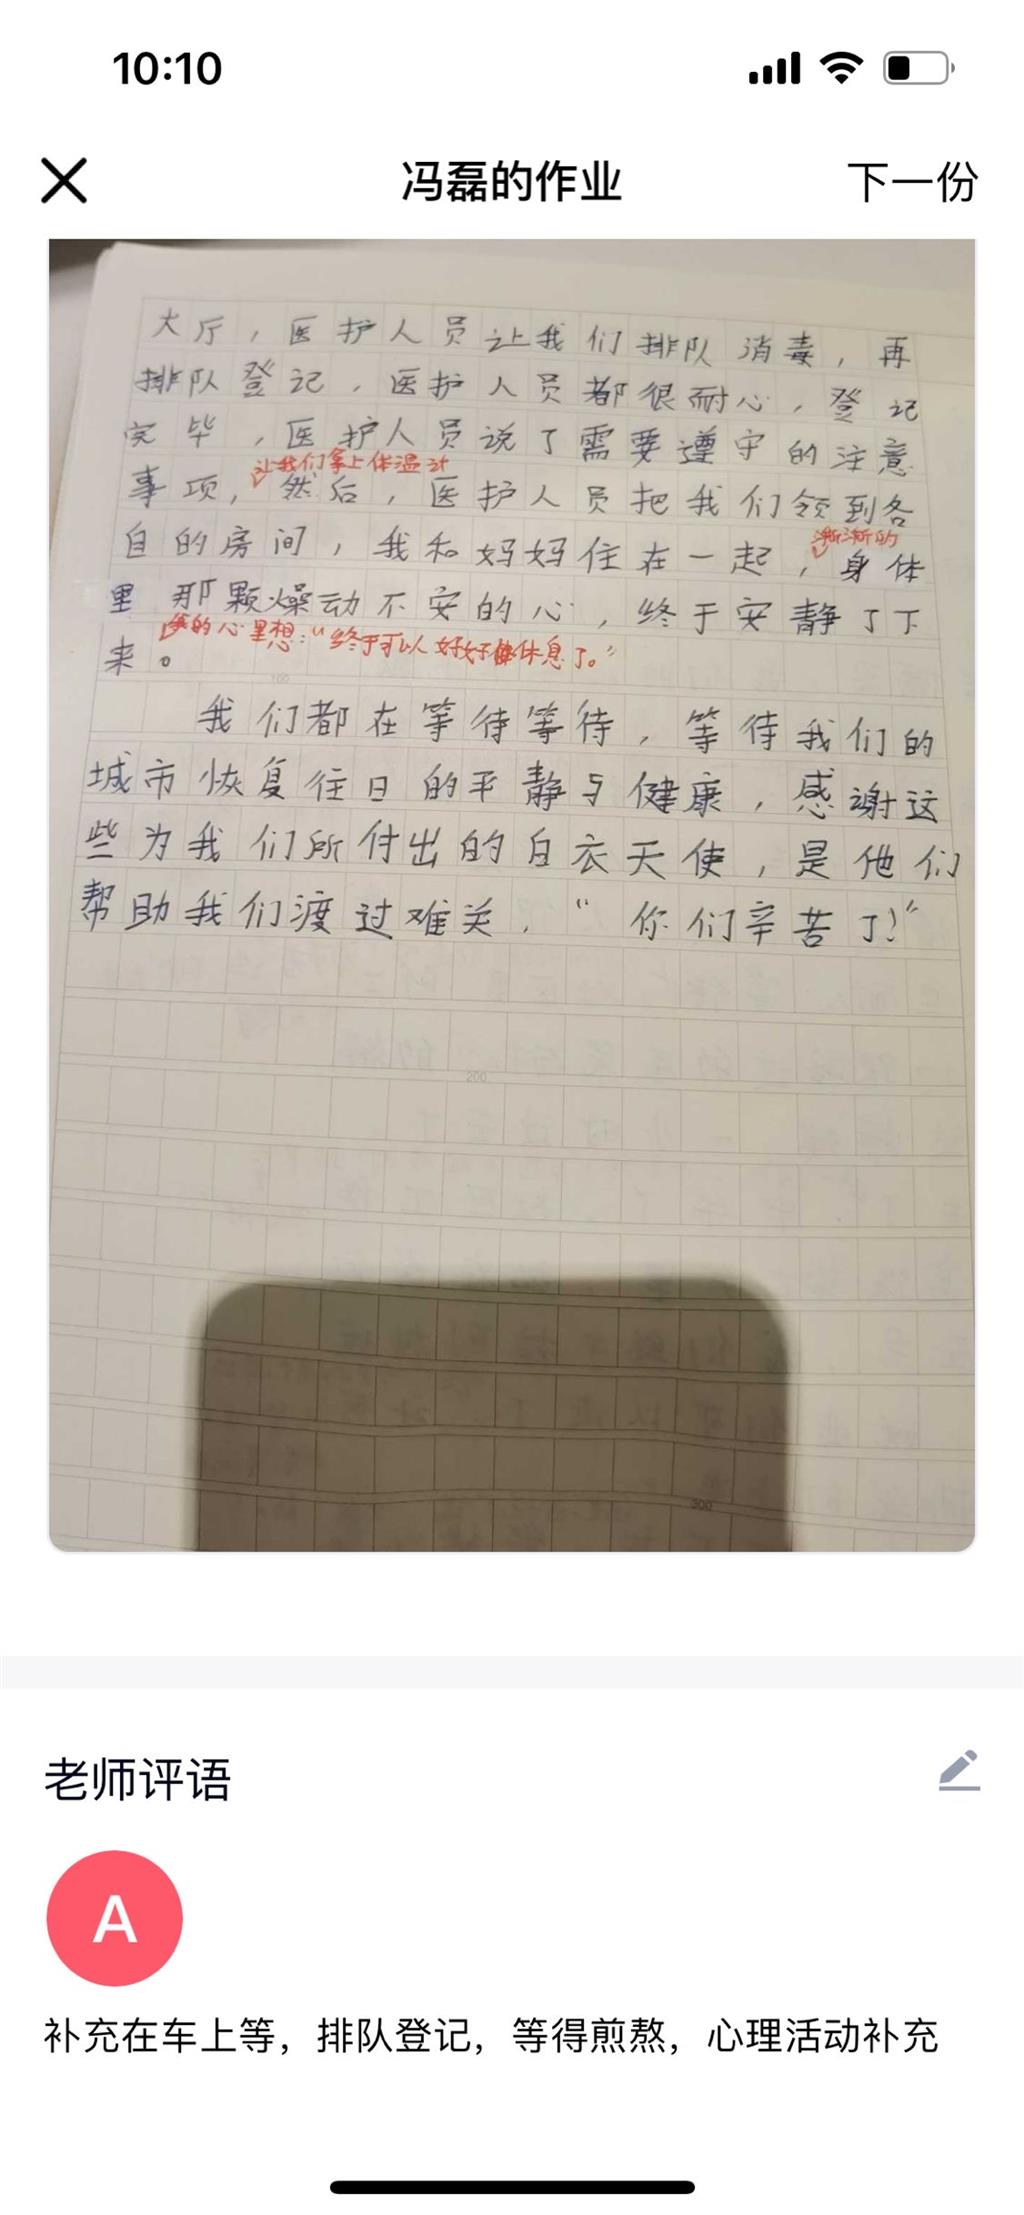 10:10
冯磊的作业
下一份
大厅，医护人员让我们排队消毒，再
排队登记，医护人员都很耐心，登记
完毕，医护人员说了需要遵守的注意
让我们拿上体温计
事项，然后，医护人员把我们领到各
渐渐的
自的房间，我和妈妈住在一起，身体
里那颗燥动不安的心，终于安静了下
的心里想：“终于可以好好休息了。”
来。
100
我们都在等待等待，等待我们的
城市恢复往日的平静与健康，感谢这
些为我们所付出的白衣天使，是他们
帮助我们渡过难关，“你们辛苦了！”
200
300
老师评语
A
补充在车上等，排队登记，等得煎熬，心理活动补充